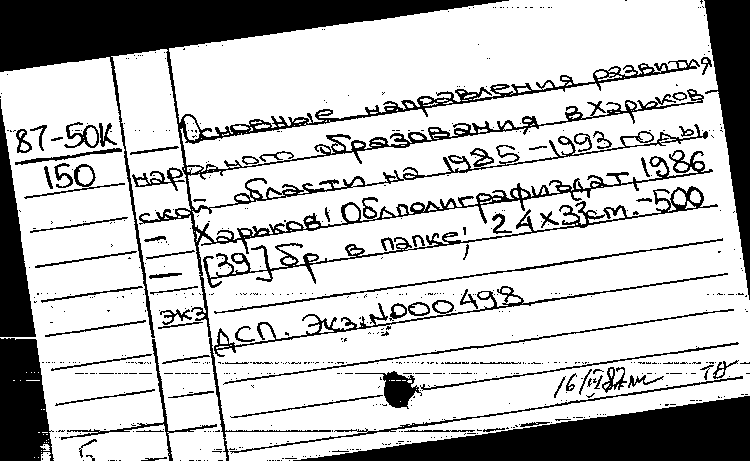 87-50К
150
Основные направления развития
народного образования в Харьков-
ской области на 1985-1993 годы.
— Харьков: Облполиграфиздат, 1986
— [39] бр. в папке; 24х33см. -500
экз
ДСП. Экз.N000498